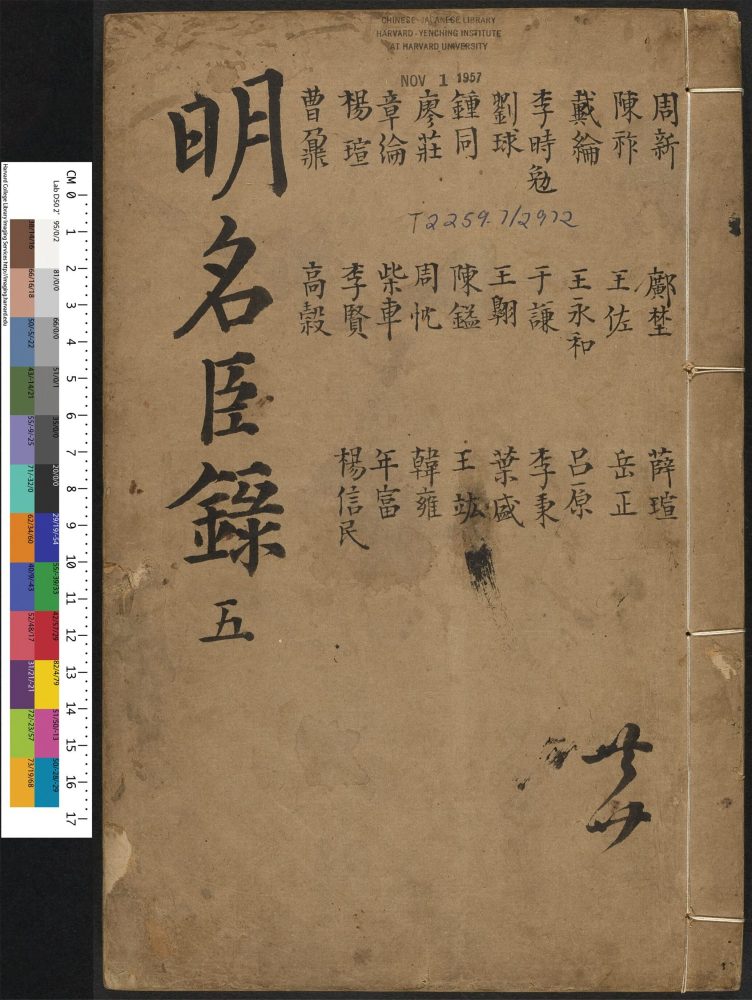 CHINESE-JAPANESE LIBRARY
HARVARD-YENCHING INSTITUTE
AT HARVARD UNIVERSITY
NOV 1 1957
T2259.7/2972
周新
陳祚
戴綸
李時勉
劉球
鍾同
廖莊
章綸
楊瑄
曹鼐
鄺埜
王佐
王永和
于謙
王翱
陳鎰
周忱
柴車
李賢
高穀
薛瑄
岳正
呂原
李秉
葉盛
王竑
韓雍
年富
楊信民
明名臣錄 五
CM 0 1 2 3 4 5 6 7 8 9 10 11 12 13 14 15 16 17
Harvard College Library Imaging Services http://imaging.harvard.edu